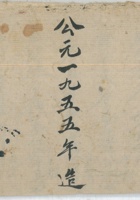 公元一九五五年造